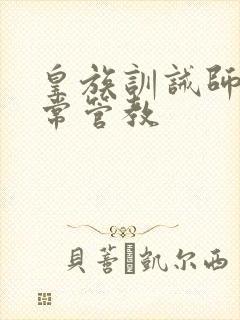 皇族訓誡師
常管教
貝蒼凱尔西